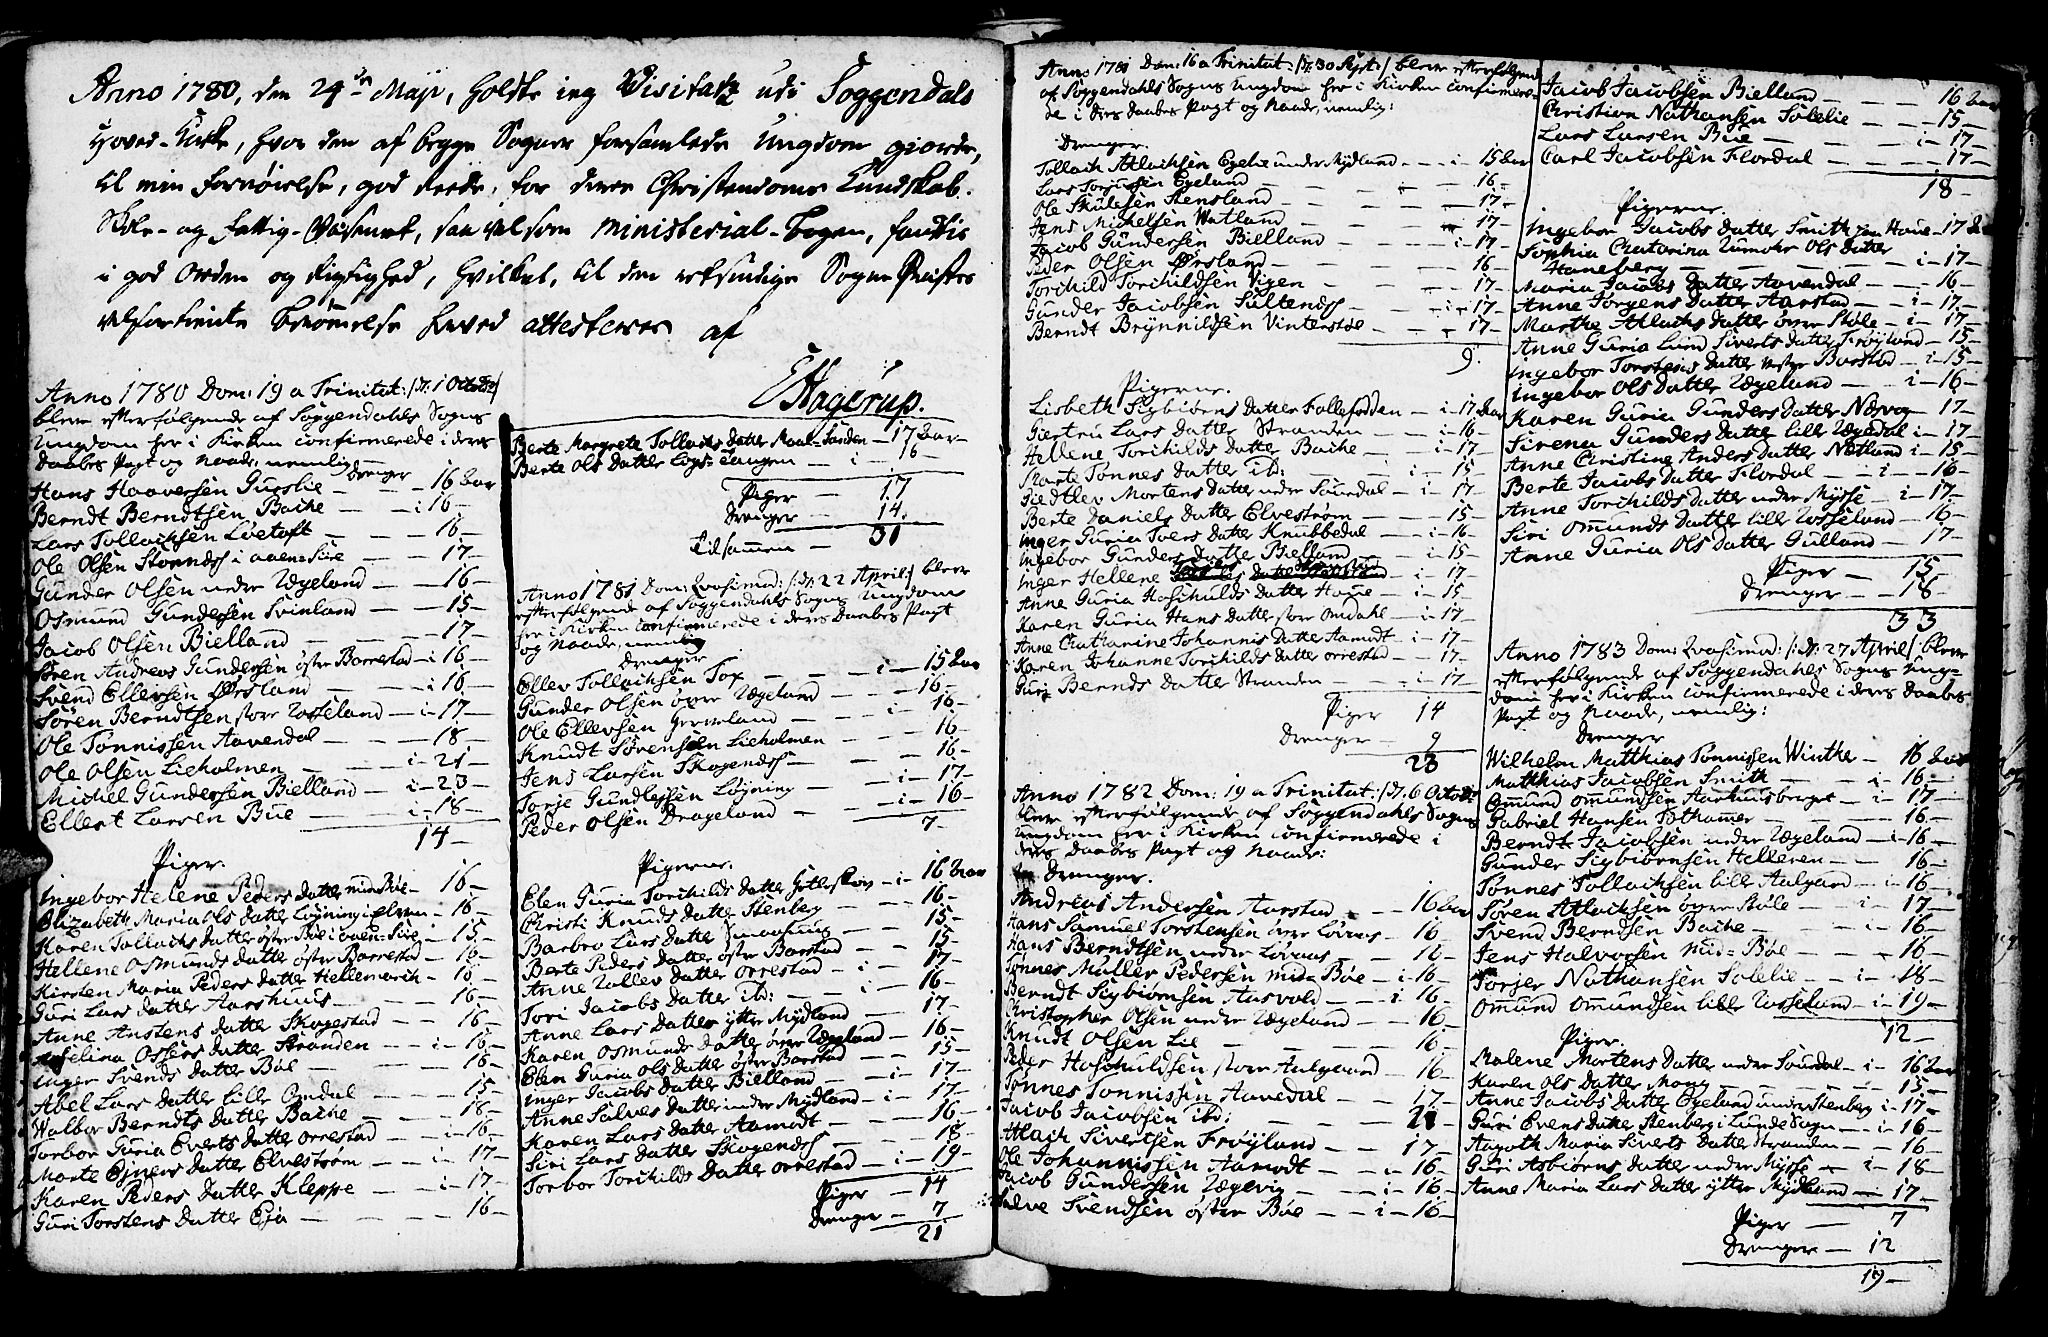 Anno 1780, den 24de Maji, holdte ieg Visitatz udi Soggendals
Hoved-Kirke, hvor den af begge Sogner forsamlede Ungdom giorde,
til min fornøielse, god rede for deres Christendoms Kundskab.
Skole- og fattig-Væsenet, saavelsom Ministerial-Bogen, fandtes
i god Orden og Rigtighed, hvilket, til den retsindige Sogne Præstes
velfortiente berømmelse herved attesteres af
E Hagerup.
Anno 1780 Dom: 19 a Trinitat: /:d. 1 Octobr:/
bleve efterfølgende af Soggendahls Sogns
Ungdom her i Kirken confirmerede i deres
Daabes Pagt og Naade, nemlig
Drenger
Hans Haaversen Gueslie - 16 Aar
Berndt Berndtsen Bache - i 16 -
Lars Tollachsen Løetoft - 16 -
Ole Olsen Stornds i aaen-Sire - 17 -
Gunder Olsen nedre Ægeland - 16 -
Osmund Gundersen Svinland - 15 -
Jacob Olsen Bielland - 17 -
Søren Andreas Gundersen øster Barrestad - i 16 -
Svend Ellersen Ørsland - i 16 -
Søren Berndtsen store Vosseland - i - 17 -
Ole Tønnissen Aavendal - 18 -
Ole Olsen Lieholmen - i - 21 -
Michel Gundersen Bielland - i - 23 -
Ellert Larsen Bue - i - 18 -
14 -
Piger.
Ingebor Helene Peders Datter mid Bøe - 16 -
Elizabeth Maria Ols Datter Løyning i elven - 16 -
Karen Tollachs Datter øster Bøe i aaen-Sire - 15 -
Hellene Osmunds Datter øster Barrestad - 16 -
Kirsten Maria Peders Datter Hellemarck - 16
Guri Lars Datter Aarshuus - 16 -
Anne Anstens Datter Skogestad - 16 -
Asselina Ossers Datter Stranden - i - 16 -
Inger Svends Datter Bøe - 16 -
Abel Lars Datter lille Omdal - 15 -
Walbor Berndts Datter Bache - 18 -
Torbor Guria Everts Datter Orrestad - i 16 -
Marte Ejners Datter Elvestrøm - i - 17 -
Karen Peders Datter Kleppe - i - 17 -
Guri Torstens Datter Eja - 16 -
Berte Margrete Tollachs Datter Maal-Sanden - 17 Aar -
Berte Ols Datter Logs-Tangen - i 16 -
Piger - 17
Drenger - 14.
Tilsammen - 31
Anno 1781 Dom: Qvasimod: /:d. 22 April:/ bleve
efterfølgende af Soggendahls Sogns Ungdom
her i Kirken confirmerede i deres Daabes Pagt
og Naade, nemlig
Drenger
Eller Tollachsen Tox - i - 15 Aar
Gunder Olsen øvre Ægeland - 16 -
Ole Ellevsen Gerveland - i - 16 -
Knudt Sørensen Lieholmen - 16 -
Jens Larsen Skogends - 16 -
Torje Gundlessen Løyning - i - 17 -
Peder Olsen Drageland - i - 16 -
7 -
Pigerne.
Elen Guria Torchilds Datter Hetleskov - i - 16 Aar
Christi Knuds Datter Stenberg - 16 -
Barbro Lars Datter - 15 -
Berte Peders Datter øster Barstad - 15 -
Anne Datter Orrestad - i - 17 -
Tori Jacobs Datter ib: - i - 16 -
Anne Lars Datter ytter Mydland - 17 -
Karen Osmunds Datter øvre Ægeland - 16 -
Elen Guria Ols Datter øster Barstad - 15 -
Inger Jacobs Datter Bielland - i - 17 -
Anne Salves Datter under Mydland - i - 17 -
Karen Lars Datter Aamodt - 16 -
Siri Lars Datter Skogends - 18 -
Torbor Torchilds Datter Orrestad - i - 19 -
Piger - 14
Drenger - 7
21
Anno 1781 Dom: 16 a Trinitat: /:d. 30 Sept:/ bleve efterfølgend
af Soggendahls Sogns Ungdom her i Kirken confirmere-
de i deres Daabes Pagt og Naade, nemlig:
Drenger.
Tollach Atlachsen Egelie under Mydland - i - 15 Aar
Lars Torjissen Egeland - 16 -
Ole Skulesen Stensland - 17 -
Jens Michelsen Watland - 17 -
Jacob Gundersen Bielland - i 17 -
Peder Olsen Ørsland - 16 -
Torchild Torchildsen Vigen - 17 -
Gunder Jacobsen - i 17 -
Berndt Brynnildsen Vinterstøe - 17 -
9.
Pigerne.
Lisbeth Sigbiørns Datter Follesodden - i - 17 Aar
Giertru Lars Datter Stranden - i - 16 -
Hellene Torchilds Datter Bache - i - 17 -
Marte Tønnes Datter ib: - i 15 -
Giedtlev Mortens Datter nedre Souedal - i - 17 -
Berte Daniels Datter Elvestrøm - 15 -
Inger Guria Ivers Datter Knubbedal - i - 16 -
Ingebor Gunders Datter Bielland - i 15 -
Inger Hellene - i - 17 -
Anne Guria Hoschulds Datter Houe - i - 15
Karen Guria Hans Datter store Omdahl - i - 17 -
Anne Chatharina Johannis Datter Aamodt - i - 17 -
Karen Johanne Torchilds Datter Orrestad - 17 -
Guri Bernds Datter Stranden - i - 17 -
Piger 14
Drenger - 9
23
Anno 1782 Dom: 19 a Trinitat: /:d. 6 Octobr:
bleve efterfølgende af Soggendahls Sogns
Ungdom her i Kirken confirmerede i
deres Daabes Pagt og Naade:
Drenger.
Andreas Andersen Aarstad - 16 Aar
Hans Samuel Torstensen øvre Løvaas - 16 -
Hans Berndtsen nedre Løvaas - 16 -
Tønnes Møller Pedersen mid-Bøe - i - 16 -
Berndt Sigbiørnsen Aasvold - i 16 -
Christopher Olsen nedre Ægeland - 16 -
Knudt Olsen Lie - 16 -
Peder Hoschuldsen store Aalgaard - 16 -
Tønnes Tønnissen Aavedal - 17 -
Jacob Jacobsen ib: - 21 -
Atlach Sivertsen Frøyland - 17 -
Ole Johannissen Aamodt - i - 16 -
Jacob Gundersen Ægevig - i - 16 -
Salve Svendsen øster Bøe - i - 16 -
Jacob Jacobsen Bielland - 16 Aar
Christian Nathansen Solelie - 15 -
Lars Larsen Bue - i - 17 -
Carl Jacobsen Flordal - 17 -
18 -
Pigerne.
Ingebor Jacobs Datter Smith paa Houe - 17 Aar
Sophia Chatarina Lumohr Ols Datter
Haneberg - i - 17 -
Maria Jacobs Datter Aavendal - 16 -
Anne Jørgens Datter Aarstad - i - 17 -
Marthe Atlachs Datter øvre Støle - i - 17 -
Anne Guria Lund Siverts Datter Frøyland - 15 -
Ingebor Torstens Datter vester Barstad - i - 15 -
Ingebor Ols Datter Ægeland - i - 16 -
Karen Guria Gunders Datter Nærvog - 17 -
Sirena Gunders Datter lille Ægedal - i - 17 -
Anne Christine Anders Datter Nætland - i - 15 -
Berte Jacobs Datter Flordal - i - 16 -
Anne Torchilds Datter nedre Mysse - i - 17 -
Siri Omunds Datter lille Vosseland - 16 -
Anne Guria Ols Datter Gulland - 17 -
Piger - 15 -
Drenger - 18 -
33
Anno 1783 Dom: Qvasimod: /:d: 27 April/ bleve
efterfølgende af Soggendahls Sogns Ung-
dom her i Kirken confirmerede i deres Daabes
Pagt og Naade, nemlig:
Drenger
Wilhelm Matthias Tønnissen Winther - 16 Aar
Matthias Jacobsen Smith - i - 16 -
Omund Omundsen Aarhuusberget - i - 17 -
Gabriel Hansen Pothamer - 16 -
Berndt Jacobsen nedre Ægeland - i - 16 -
Gunder Sigbiørnsen Helleren - 16 -
Tønnes Tollachsen lille Aalgard - i - 16 -
Søren Atlachsen øvre Støle - i - 17 -
Svend Berndsen Bache - 16 -
Jens Halvorsen mid-Bøe - 16 -
Torjer Nathansen Solelie - i - 18 -
Omund Omundsen lille Vosseland - i - 19 -
12 -
Piger.
Malene Mortens Datter nedre Souedal - i - 16 Aar
Karen Ols Datter Mong - 15 -
Anne Jacobs Datter Egeland under Stenberg - i - 17 -
Guri Evens Datter Stenberg i Lunde Sogn - i - 16 -
Aagoth Maria Siverts Datter Stranden - 16 -
Guri Asbiørns Datter nedre Mysse - i - 18 -
Anne Maria Lars Datter ytter Mydland - i - 17 -
Piger - 7
Drenger - 12
19 -